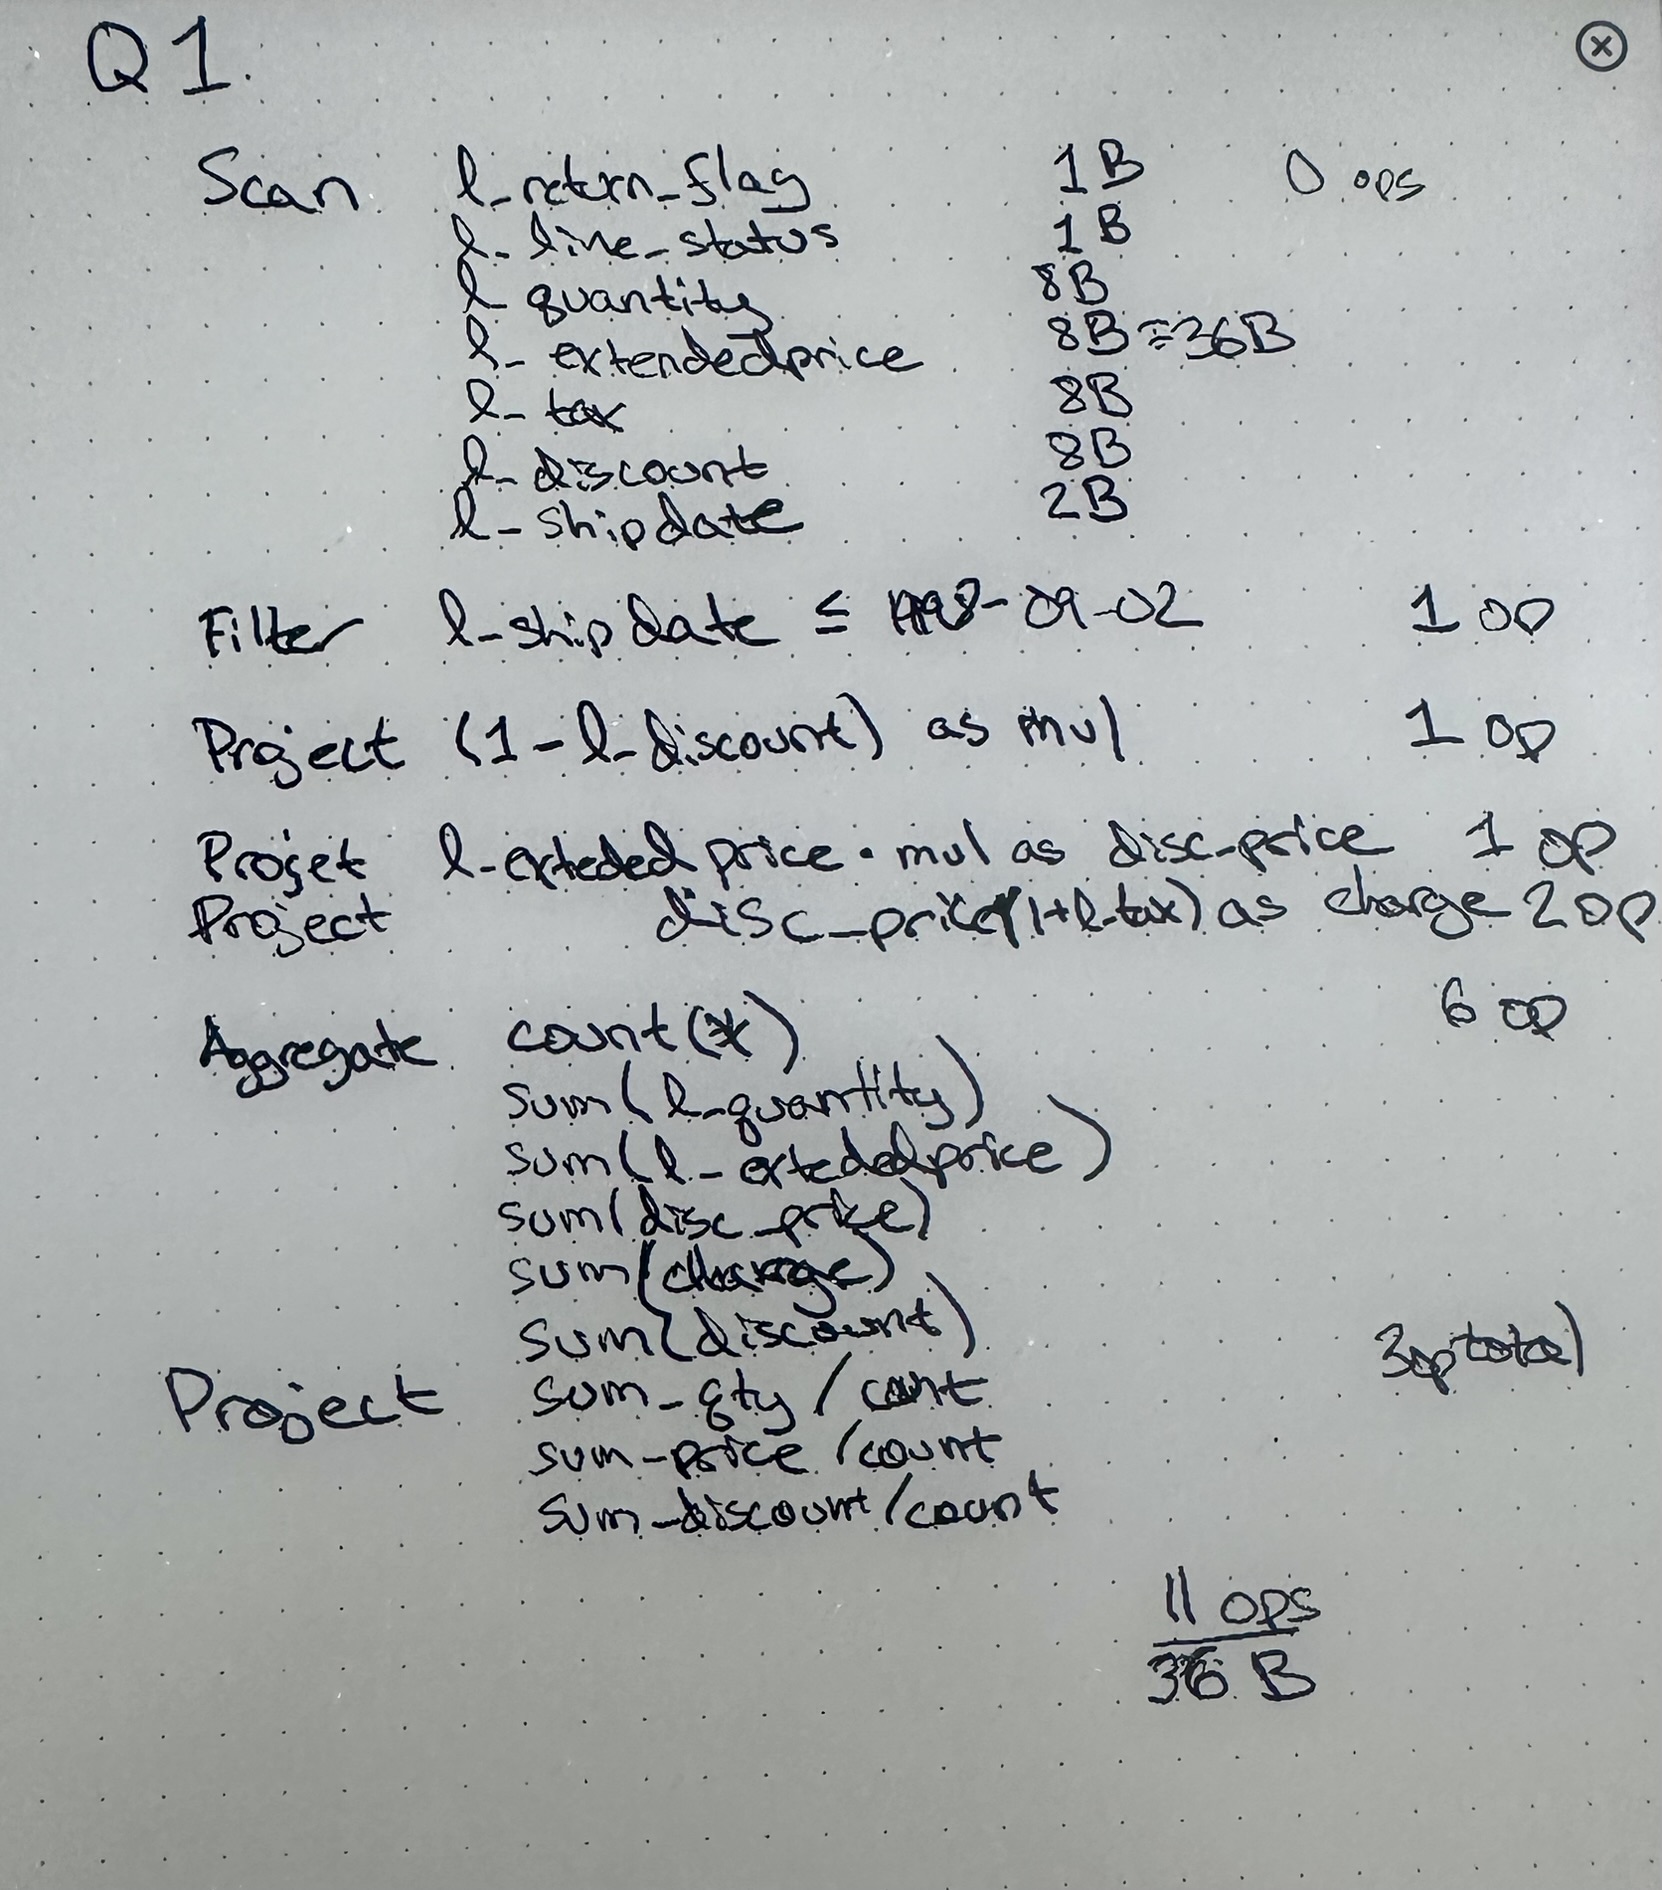 Q1
Scan l_return_flag 1B 0 ops
l_line_status 1B
l_quantity 8B
l_extendedprice 8B = 36B
l_tax 8B
l_discount 8B
l_shipdate 2B
Filter l_shipdate ≤ 1998-09-02 1 op
Project (1-l_discount) as mul 1 op
Projet l_exteded price · mul as disc_price 1 op
Project disc_price(1+l_tax) as charge 2 op
6 op
Aggregate count(*)
sum(l_quantity)
sum(l_extededprice)
sum(disc_price)
sum(charge)
sum(discount)
3op total
Project sum_qty / count
sum_price /count
sum_discount/count
11 ops
36 B